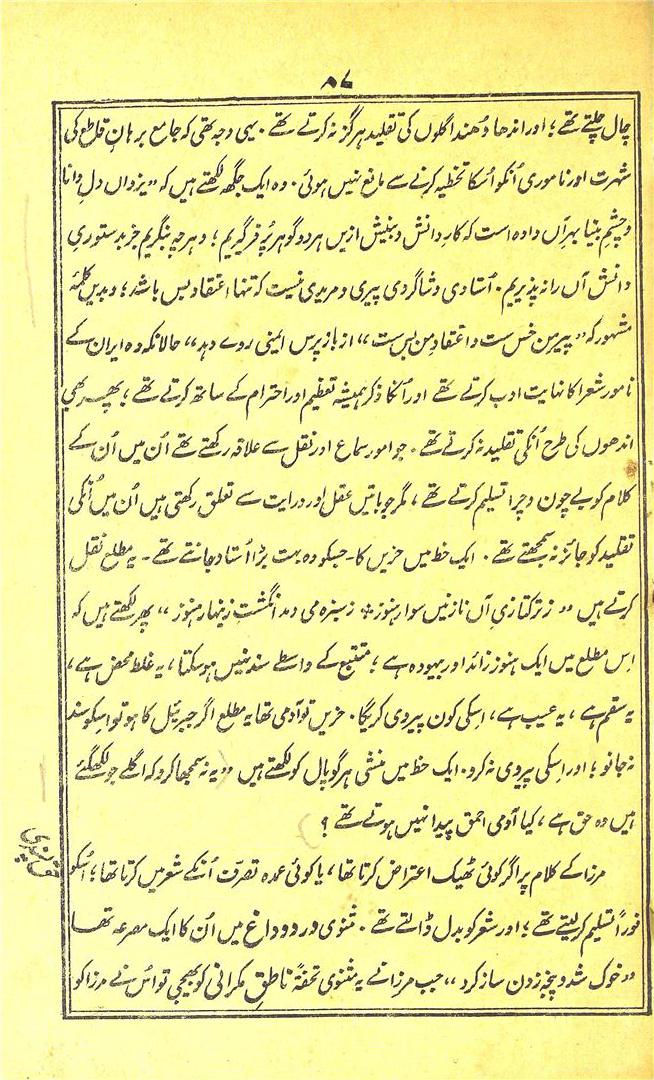 ۸۷
چال چلتے تھے؛ اور اندھا دُھند اگلوں کی تقلید ہرگز نہ کرتے تھے۔ یہی وجہ تھی کہ جامع برہانِ قاطع کی
شہرت اور ناموری اُنکو اُسکا تخطیہ کرنے سے مانع نہیں ہوئی۔ وہ ایک جگھ لکھتے ہیں کہ ”یزداں دلِ دانا
و چشمِ بینا بہرِ آں دادہ است کہ کارِ دانش و بینش ازیں ہر دو گوہرِ پُر فر گیریم؛ و ہرچہ بنگریم جز بدستوریِ
دانش آں را نہ پذیریم۔ اُستادی و شاگردی پیری و مریدی نیست کہ تنہا اعتقاد بس باشد؛ و بدیں کلمۂ
مشہور کہ ”پیرِ من خس ست و اعتقادِ من بس ست“ از باز پرس ایمنی روے دہد“ حالانکہ وہ ایران کے
نامور شعرا کا نہایت ادب کرتے تھے اور اُنکا ذکر ہمیشہ تعظیم اور احترام کے ساتھ کرتے تھے؛ پھر بھی
اندھوں کی طرح اُنکی تقلید نہ کرتے تھے۔ جو امور سماع اور نقل سے علاقہ رکھتے تھے اُن میں اُن کے
کلام کو بے چون و چرا تسلیم کرتے تھے، مگر جو باتیں عقل اور درایت سے تعلق رکھتی ہیں اُن میں اُنکی
تقلید کو جائز نہ سمجھتے تھے۔ ایک خط میں حزیں کا۔ جسکو وہ بہت بڑا اُستاد جانتے تھے۔ یہ مطلع نقل
کرتے ہیں ”ز ترکتازیِ آں نازنیں سوار ہنوز * ز سبزہ می دمد انگشتِ زینہار ہنوز“ پھر لکھتے ہیں کہ
اِس مطلع میں ایک ہنوز زائد اور بیہودہ ہے؛ متتبع کے واسطے سند نہیں ہوسکتا، یہ غلط محض ہے،
یہ سقم ہے، یہ عیب ہے، اسکی کون پیروی کریگا۔ حزیں تو آدمی تھا یہ مطلع اگر جبرئیل کا ہو تو اِسکو سند
نہ جانو؛ اور اِسکی پیروی نہ کرو۔ ایک خط میں منشی ہرگوپال کو لکھتے ہیں ”یہ نہ سمجھا کرو کہ اگلے جو لکھ گئے
ہیں وہ حق ہے، کیا آدمی احمق پیدا نہیں ہوتے تھے؟
مرزا کے کلام پر اگر کوئی ٹھیک اعتراض کرتا تھا، یا کوئی عمدہ تصرّف اُنکے شعر میں کرتا تھا؛ اُسکو
حق پسندی
فوراً تسلیم کرلیتے تھے؛ اور شعر کو بدل ڈالتے تھے۔ مثنوی درد و داغ میں اُن کا ایک مصرعہ تھا
”خوک شد و پنجہ زدن ساز کرد“ جب مرزا نے یہ مثنوی تحفۃً ناطقِ مکرانی کو بھیجی تو اُس نے مرزا کو